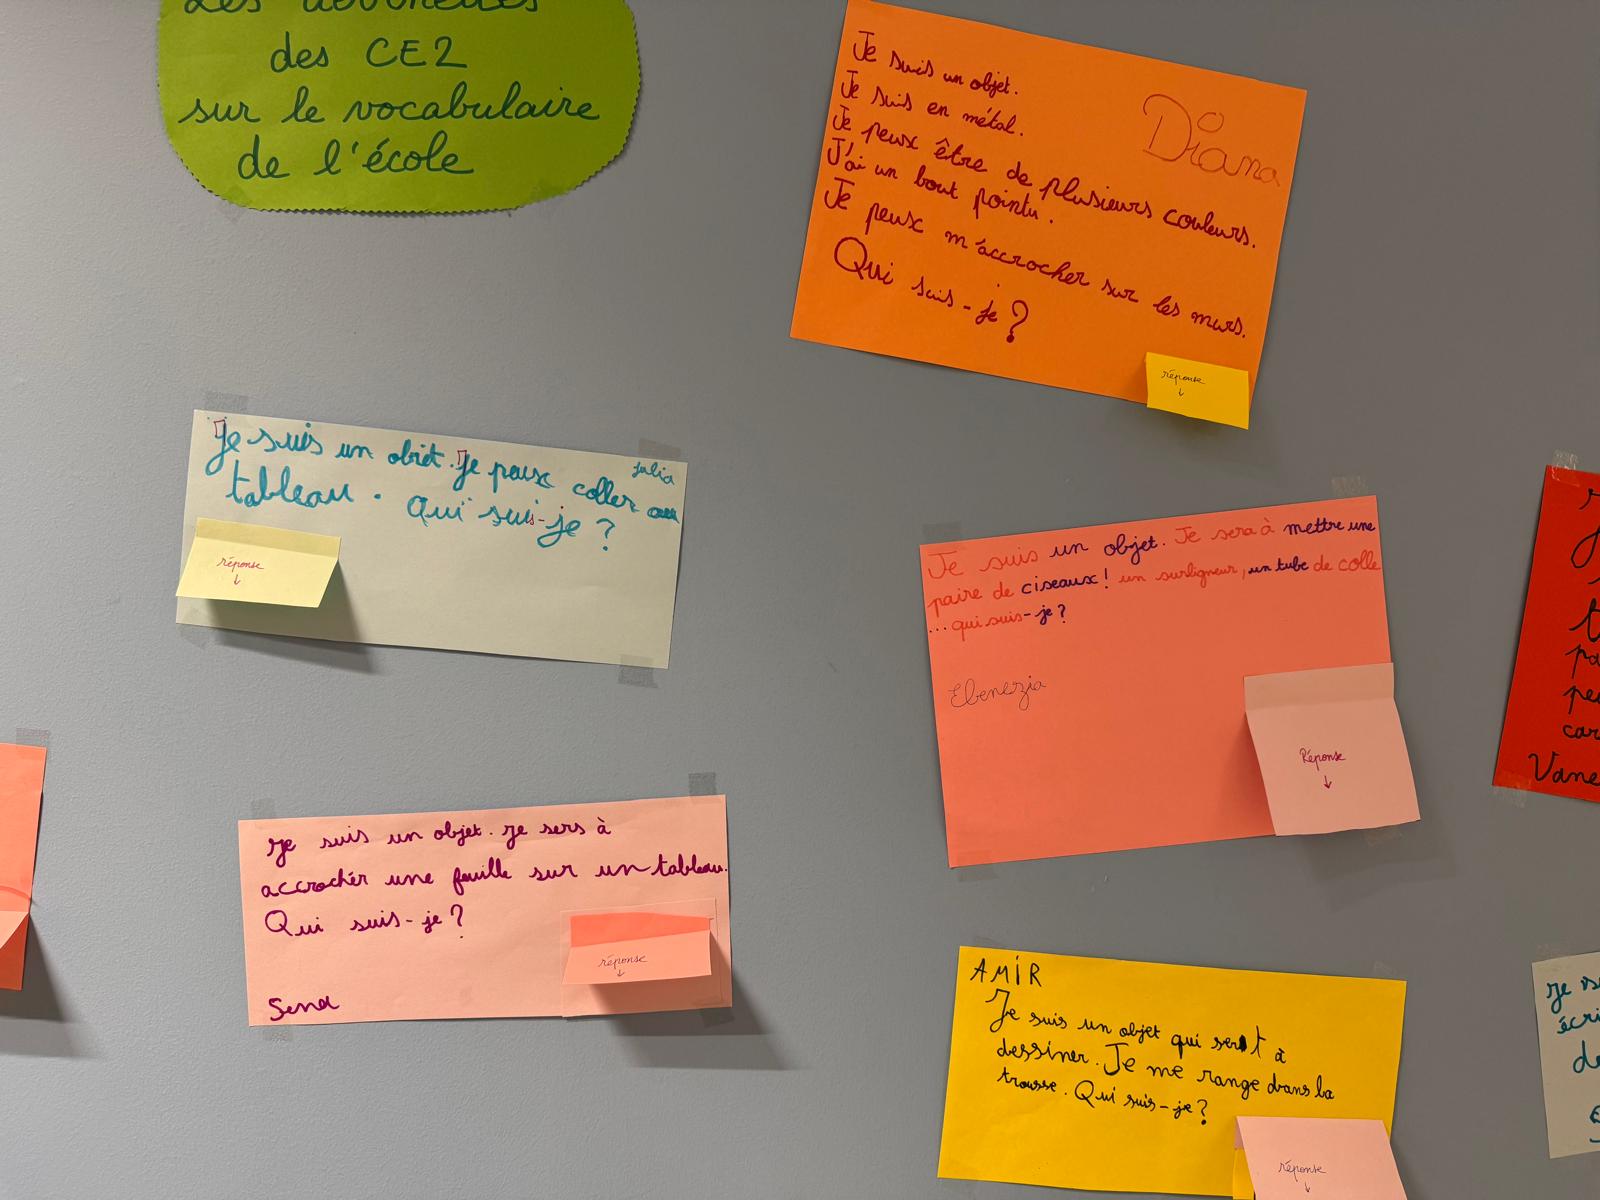 Les devinettes
des CE2
sur le vocabulaire
de l'école
Je suis un objet.
Je suis en métal.
Je peux être de plusieurs couleurs.
J'ai un bout pointu.
Je peux m'accrocher sur les murs.
Qui suis-je ?
Diana
réponse
↓
Je suis un objet. Je peux coller au
tableau. Qui suis-je ?
Julia
réponse
↓
Je suis un objet. Je sera à mettre une
paire de ciseaux ! un surligneur, un tube de colle
... qui suis-je ?
Ebenezia
Réponse
↓
Je suis un objet. Je sers à
accrochér une feuille sur un tableau.
Qui suis-je ?
Send
réponse
↓
AMİR
Je suis un objet qui sert à
dessiner. Je me range dans la
trousse. Qui suis-je ?
réponse
↓
Vane
Je
écri